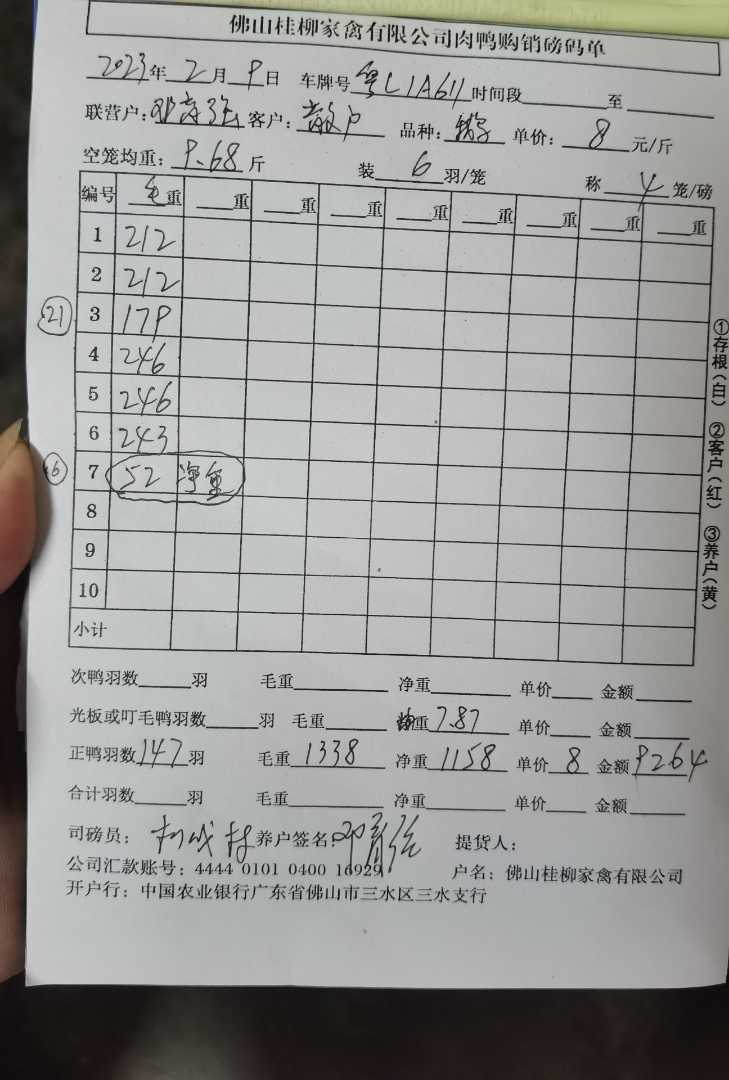 佛山桂柳家禽有限公司肉鸭购销磅码单
2023年2月9日 车牌号粤L1A611时间段 至
联营户: 客户:散户 品种: 单价:8元/斤
空笼均重:9.68斤 装6羽/笼 称4笼/磅
编号 毛重 重 重 重 重 重 重 重 重
1 212
2 212
21 3 179
4 246
5 246
6 243
6 7 52 净重
8
9
10
小计
①存根(白) ②客户(红) ③养户(黄)
次鸭羽数 羽 毛重 净重 单价 金额
光板或叮毛鸭羽数 羽 毛重 均重7.87 单价 金额
正鸭羽数147羽 毛重1338 净重1158 单价8 金额9264
合计羽数 羽 毛重 净重 单价 金额
司磅员: 养户签名: 提货人:
公司汇款账号:4444 0101 0400 16929 户名:佛山桂柳家禽有限公司
开户行:中国农业银行广东省佛山市三水区三水支行